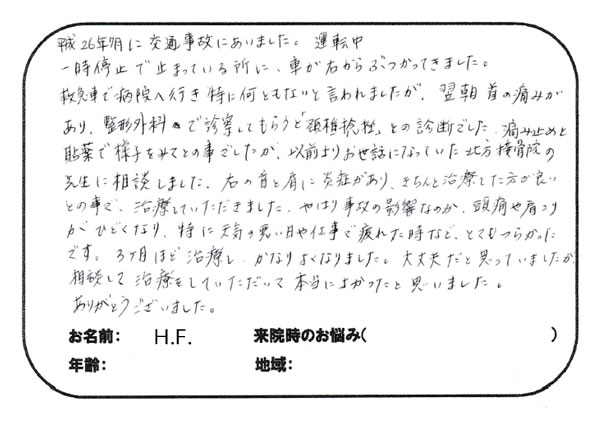 平成26年7月に交通事故にあいました。運転中
一時停止で止まっている所に、車が右からぶつかってきました。
救急車で病院へ行き特に何ともないと言われましたが、翌朝首の痛みが
あり、整形外科で診察してもらうと「頚椎捻挫」との診断でした。痛み止めと
貼薬で様子をみてとの事でしたが、以前よりお世話になっていた北方接骨院の
先生に相談しました。右の首と肩に炎症があり、きちんと治療した方が良い
との事で、治療していただきました。やはり事故の影響なのか、頭痛や肩こり
がひどくなり、特に天気の悪い日や仕事で疲れた時など、とてもつらかった
です。3ヶ月ほど治療し、かなりよくなりました。大丈夫だと思っていましたが
相談して治療をしていただいて本当によかったと思いました。
ありがとうございました。
お名前： H.F. 来院時のお悩み( )
年齢： 地域：